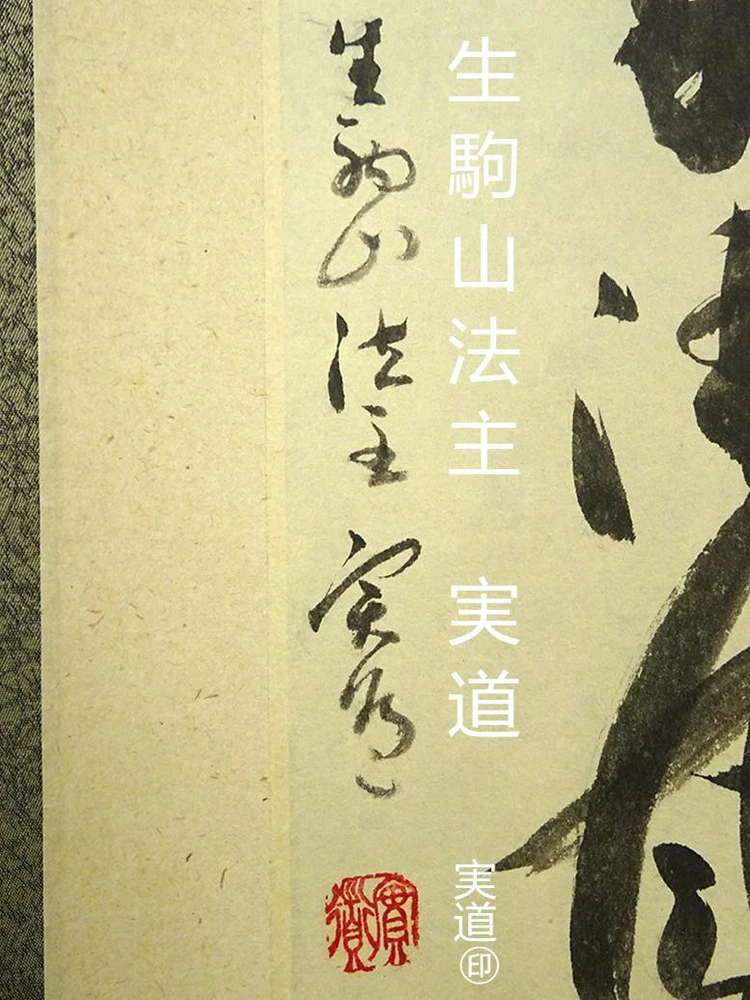 生駒山法主 実道
実道㊞
生駒山法主 実道
實道